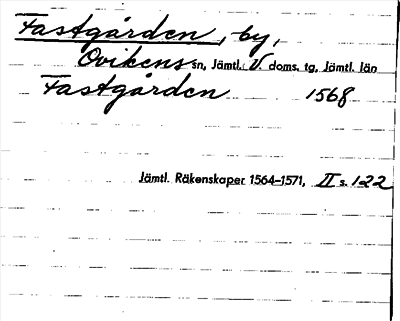 Fastgården, by,
Ovikens sn, Jämtl. V. doms. tg, Jämtl. län
Fastgården 1568
Jämtl. Räkenskaper 1564-1571, II s. 122